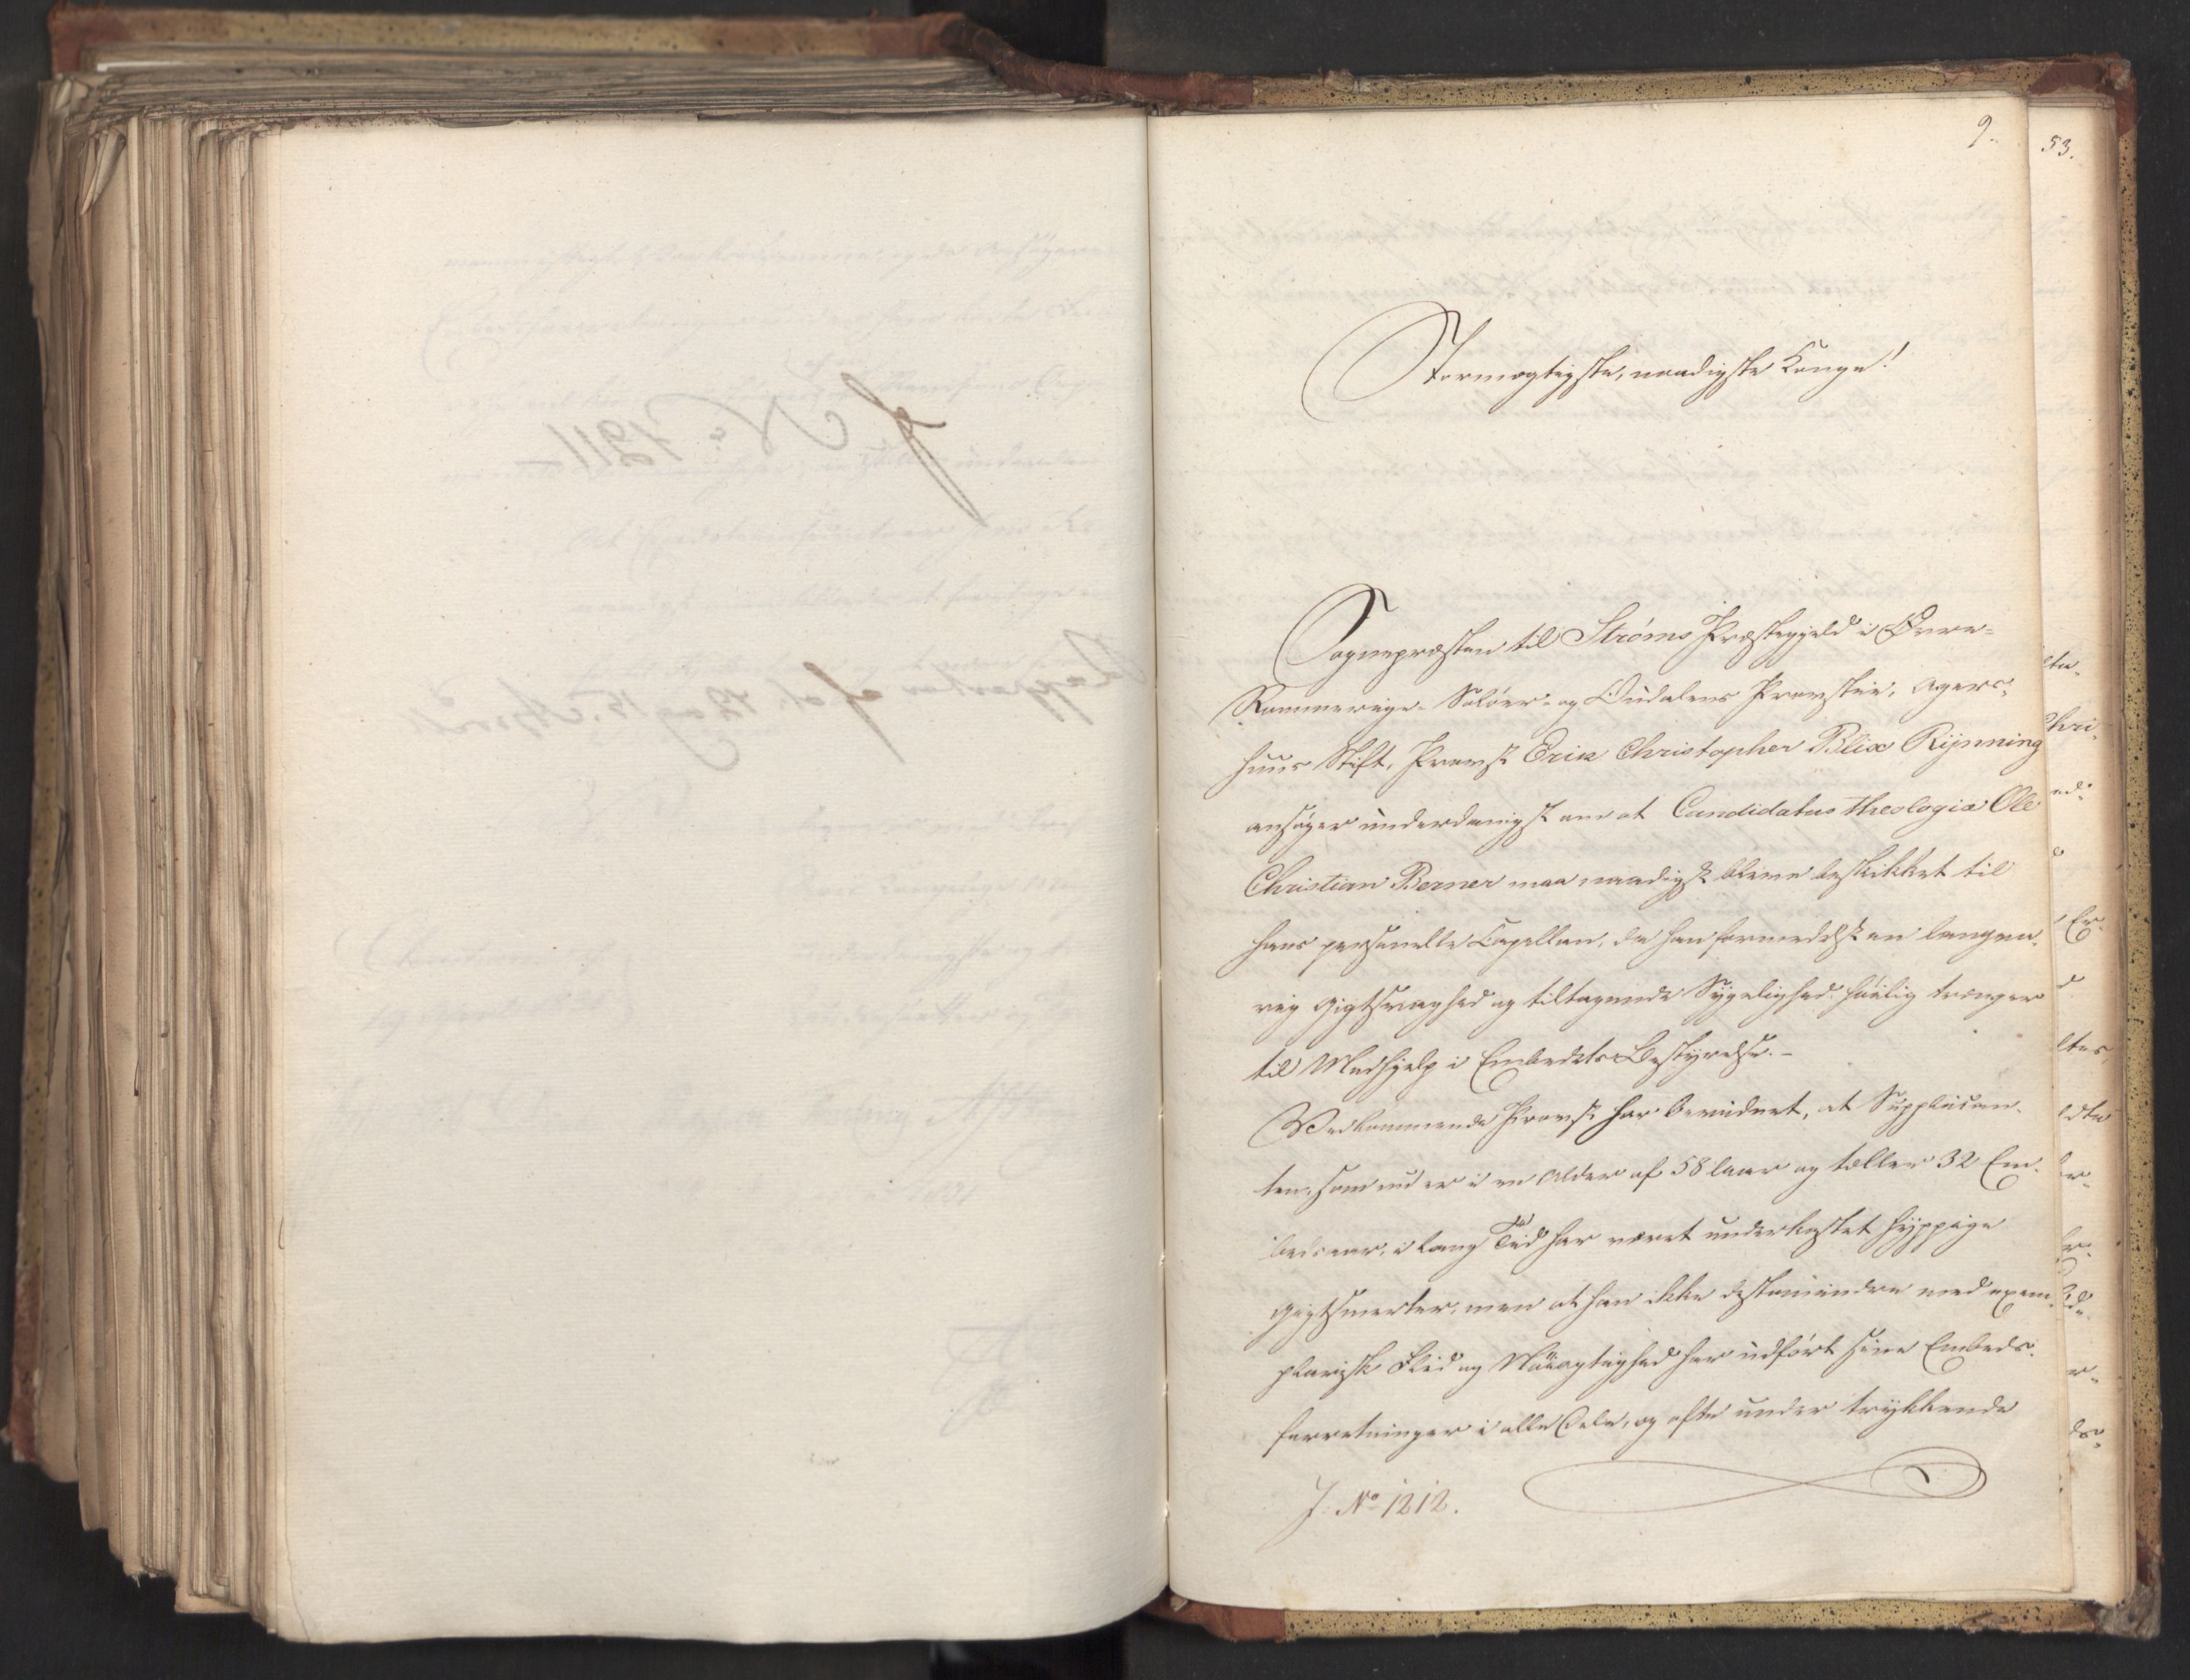 9.
53.
Stormægtigste, naadigste Konge!
Sognepræsten til Ströms Præstegjeld i Øvre-
Rommerige-Solöer- og Oudalens Provstie, Agers-
huus Stift, Provst Erik Christopher Blix Rÿnning
ansöger underdanigst om at Candidatus theologiæ Ole
Christian Berner maa naadigst blive beskikket til
hans personelle Capellan, da han formedelst en langva-
rig Gigtsvaghed og tiltagende Sÿgelighed höilig trænger
til Medhjelp i Embedets Bestÿrelse. -
Vedkommende Provst har bevidnet, at Supplican-
ten, som nu er i en Alder af 58 Aar og tæller 32 Em-
bedsaar, i lang Tid har været underkastet hÿppige
Gigtsmerter, men at han ikke destomindre med exem-
plarisk Flid og Nöiagtighed har udfört sine Embeds-
forretninger i alle Dele, og ofte under trÿkkende
J. No 1212.